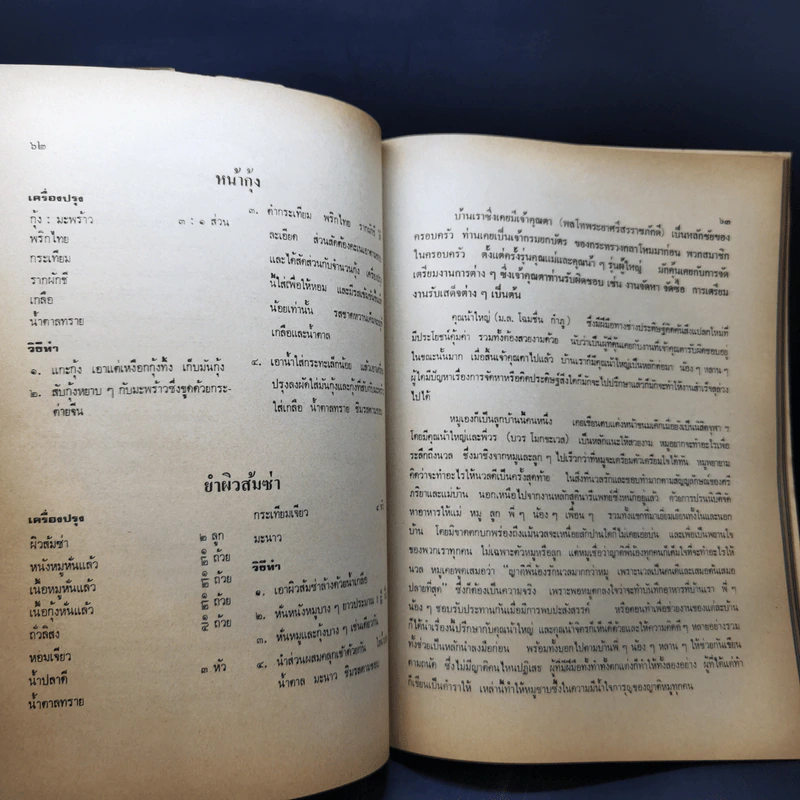 ๖๒
หน้ากุ้ง
เครื่องปรุง
กุ้ง : มะพร้าว ๓ : ๑ ส่วน
พริกไทย
กระเทียม
รากผักชี
เกลือ
น้ำตาลทราย
วิธีทำ
๑. แกะกุ้ง เอาแต่เหงือกกุ้งทิ้ง เก็บมันกุ้ง
๒. สับกุ้งหยาบ ๆ กับมะพร้าวซึ่งขูดด้วยกระ-
ต่ายจีน
๓. ตำกระเทียม พริกไทย รากผักชี ให้
ละเอียด
และได้สัดส่วนกับจำนวนกุ้ง
นี้ใส่เพื่อให้หอม
น้อยเท่านั้น
เกลือและน้ำตาล
๔. เอาน้ำใส่กระทะเล็กน้อย
ปรุงลงผัดใส่มันกุ้งและกุ้งที่สับกับมะพร้าว
ใส่เกลือ น้ำตาลทราย ชิมรสตามชอบ
ยำผิวส้มซ่า
เครื่องปรุง
ผิวส้มซ่า ๒ ลูก
หนังหมูหั่นแล้ว ๑/๒ ถ้วย
เนื้อหมูหั่นแล้ว ๑/๒ ถ้วย
เนื้อกุ้งหั่นแล้ว ๑/๒ ถ้วย
ถั่วลิสง ถ้วย
หอมเจียว
น้ำปลาดี ๓ หัว
น้ำตาลทราย
กระเทียมเจียว
มะนาว
วิธีทำ
๑. เอาผิวส้มซ่าล้างด้วยน้ำเกลือ
๒. หั่นหนังหมูบาง ๆ ยาวประมาณ
๓. หั่นหมูและกุ้งบาง ๆ เช่นเดียวกัน
๔. นำส่วนผสมคลุกเข้าด้วยกัน
น้ำตาล มะนาว ชิมรสตามชอบ
๖๓
บ้านเราซึ่งเคยมีเจ้าคุณตา (พลโทพระยาศรีสรราชภักดี) เป็นหลักชัยของ
ครอบครัว ท่านเคยเป็นเจ้ากรมยกบัตร ของกระทรวงกลาโหมมาก่อน พวกสมาชิก
ในครอบครัว ตั้งแต่ครั้งรุ่นคุณแม่และคุณน้า ๆ รุ่นผู้ใหญ่ มักคุ้นเคยกับการจัด
เตรียมงานการต่าง ๆ ซึ่งเจ้าคุณตาท่านรับผิดชอบ เช่น งานจัดหา จัดซื้อ การเตรียม
งานรับเสด็จต่าง ๆ เป็นต้น
คุณน้าใหญ่ (ม.ล. โฉมชื่น กำภู) ซึ่งมีฝีมือทางช่างประดิษฐ์คิดค้นสิ่งแปลกใหม่ที่
มีประโยชน์คุ้มค่า รวมทั้งท้องสวยงามด้วย นับว่าเป็นผู้ที่คุ้นเคยกับงานที่เจ้าคุณตารับผิดชอบอยู่
ในขณะนั้นมาก เมื่อสิ้นเจ้าคุณตาไปแล้ว บ้านเราก็มีคุณน้าใหญ่เป็นหลักต่อมา น้อง ๆ หลาน ๆ
ผู้ใดมีปัญหาเรื่องการจัดหาหรือคิดประดิษฐ์สิ่งใดก็มักจะไปปรึกษาแล้วก็มักจะทำให้งานสำเร็จลุล่วง
ไปได้
หมูเองก็เป็นลูกบ้านนี้คนหนึ่ง
โดยมีคุณน้าใหญ่และพี่วร (บวร โมกขะเวส) เป็นหลักแนะให้สวยงาม หมูอยากจะทำอะไรเพื่อ
ระลึกถึงนวล ซึ่งมาชิงจากหมูและลูก ๆ ไปเร็วกว่าที่หมูจะเตรียมตัวเตรียมใจได้ทัน หมูพยายาม
คิดว่าจะทำอะไรให้นวลดีเป็นครั้งสุดท้าย ในสิ่งที่นวลรักและชอบทำมากตามสัญญลักษณ์ของศรี
ภริยาและแม่บ้าน นอกเหนือไปจากงานหลักสูดนารีแพทย์ซึ่งหนักอยู่แล้ว ด้วยการปรนนิบัติจัด
หาอาหารให้แม่ หมู ลูก พี่ ๆ น้อง ๆ เพื่อน ๆ รวมทั้งแขกที่มาเยี่ยมเยือนทั้งในและนอก
บ้าน โดยมิขาดตกบกพร่องถึงแม้นวลจะเหนื่อยสักปานใดก็ไม่เคยเอ่ยบ่น และเพื่อเป็นงานฝากใจ
ของพวกเราทุกคน ไม่เฉพาะตัวหมูหรือลูก แต่หมูเชื่อว่าญาติพี่น้องทุกคนก็เต็มใจที่จะทำอะไรให้
นวล หมูเคยพูดเสมอว่า "ญาติพี่น้องรักนวลมากกว่าหมู เพราะนวลเป็นคนดีและเสมอต้นเสมอ
ปลายที่สุด" ซึ่งก็ต้องเป็นความจริง เพราะพอหมูตกลงใจว่าจะทำบันทึกอาหารที่บ้านเรา พี่ ๆ
น้อง ๆ ชอบรับประทานกันเมื่อมีการพบปะสังสรรค์ หรือตอนทำเพื่อช่วยงานของแต่ละบ้าน
ก็ได้นำเรื่องนี้ปรึกษากับคุณน้าใหญ่ และคุณน้าจตรก็เห็นดีด้วยและให้ความคิดดี ๆ หลายอย่างรวม
ทั้งช่วยเป็นหลักนำลงมือก่อน พร้อมทั้งบอกไปตามบ้านพี่ ๆ น้อง ๆ หลาน ๆ ให้ช่วยกันเขียน
ตามถนัด ซึ่งไม่มีญาติคนไหนปฏิเสธ ผู้ที่มีฝีมือทั้งทำทั้งตกแต่งก็ทำให้ทั้งสองอย่าง ผู้ที่ได้แต่ทำ
ก็เขียนเป็นตำราให้ เหล่านี้ทำให้หมูซาบซึ้งในความมีน้ำใจการุญของญาติหมูทุกคน